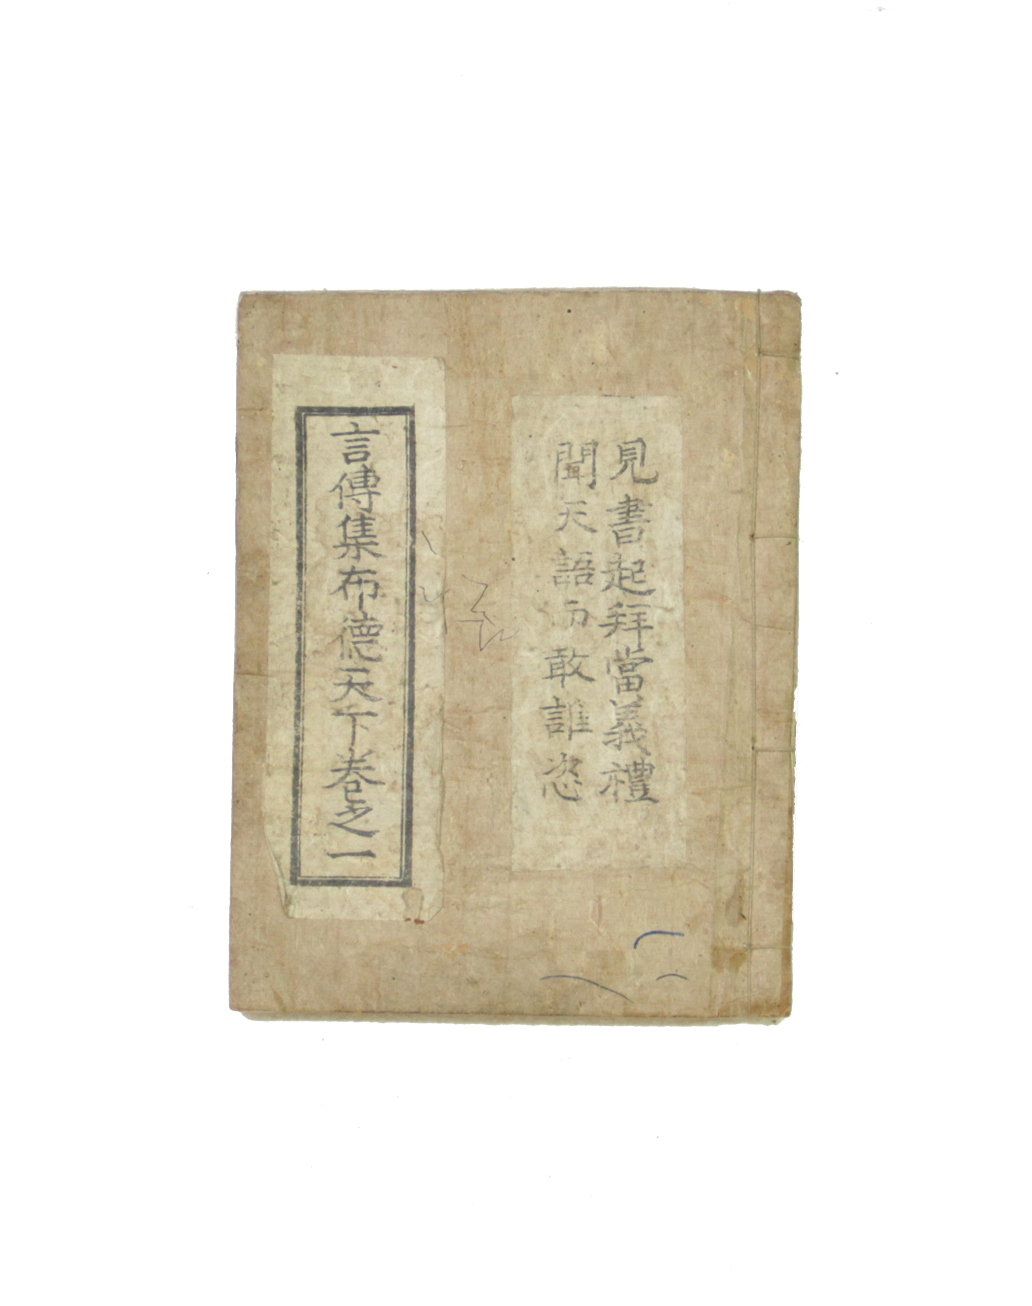 見書起拜當義禮
聞天語而敢誰恣
言傳集布德天下卷之一